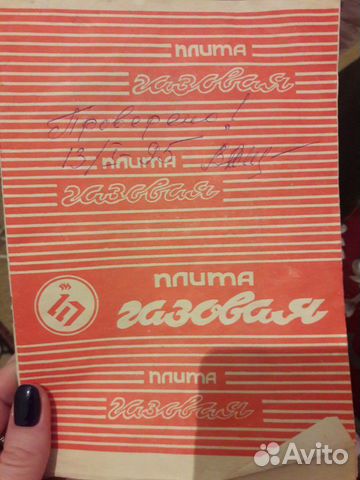 плита
газовая
Проверено!
13/V 95
плита
газовая
плита
газовая
плита
газовая
Avito